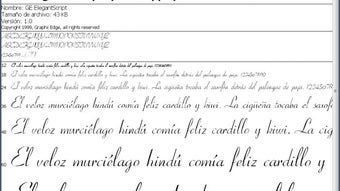 Nombre: GE ElegantScript
Tamaño de archivo: 43 KB
Versión: 1.0
Copyright 1999, Graphx Edge, all rights reserved
ABCDEFGHIJKLMNOPQRSTUVWXYZ
12 El veloz murciélago hindú comía feliz cardillo y kiwi. La cigüeña tocaba el saxofón detrás del palenque de paja. 1234567890
18 El veloz murciélago hindú comía feliz cardillo y kiwi. La cigüeña tocaba el saxofón detrás del palenque de paja. 1234567890
24 El veloz murciélago hindú comía feliz cardillo y kiwi. La cigüeña tocaba el saxofón detrás del palenque de paja. 12345678
36 El veloz murciélago hindú comía feliz cardillo y kiwi. La cigüeña tocaba el saxof
48 El veloz murciélago hindú comía feliz cardillo y kiwi. La cig
60 El veloz murciélago hindú comía feliz cardillo y
El veloz murciélago hindú comía feliz